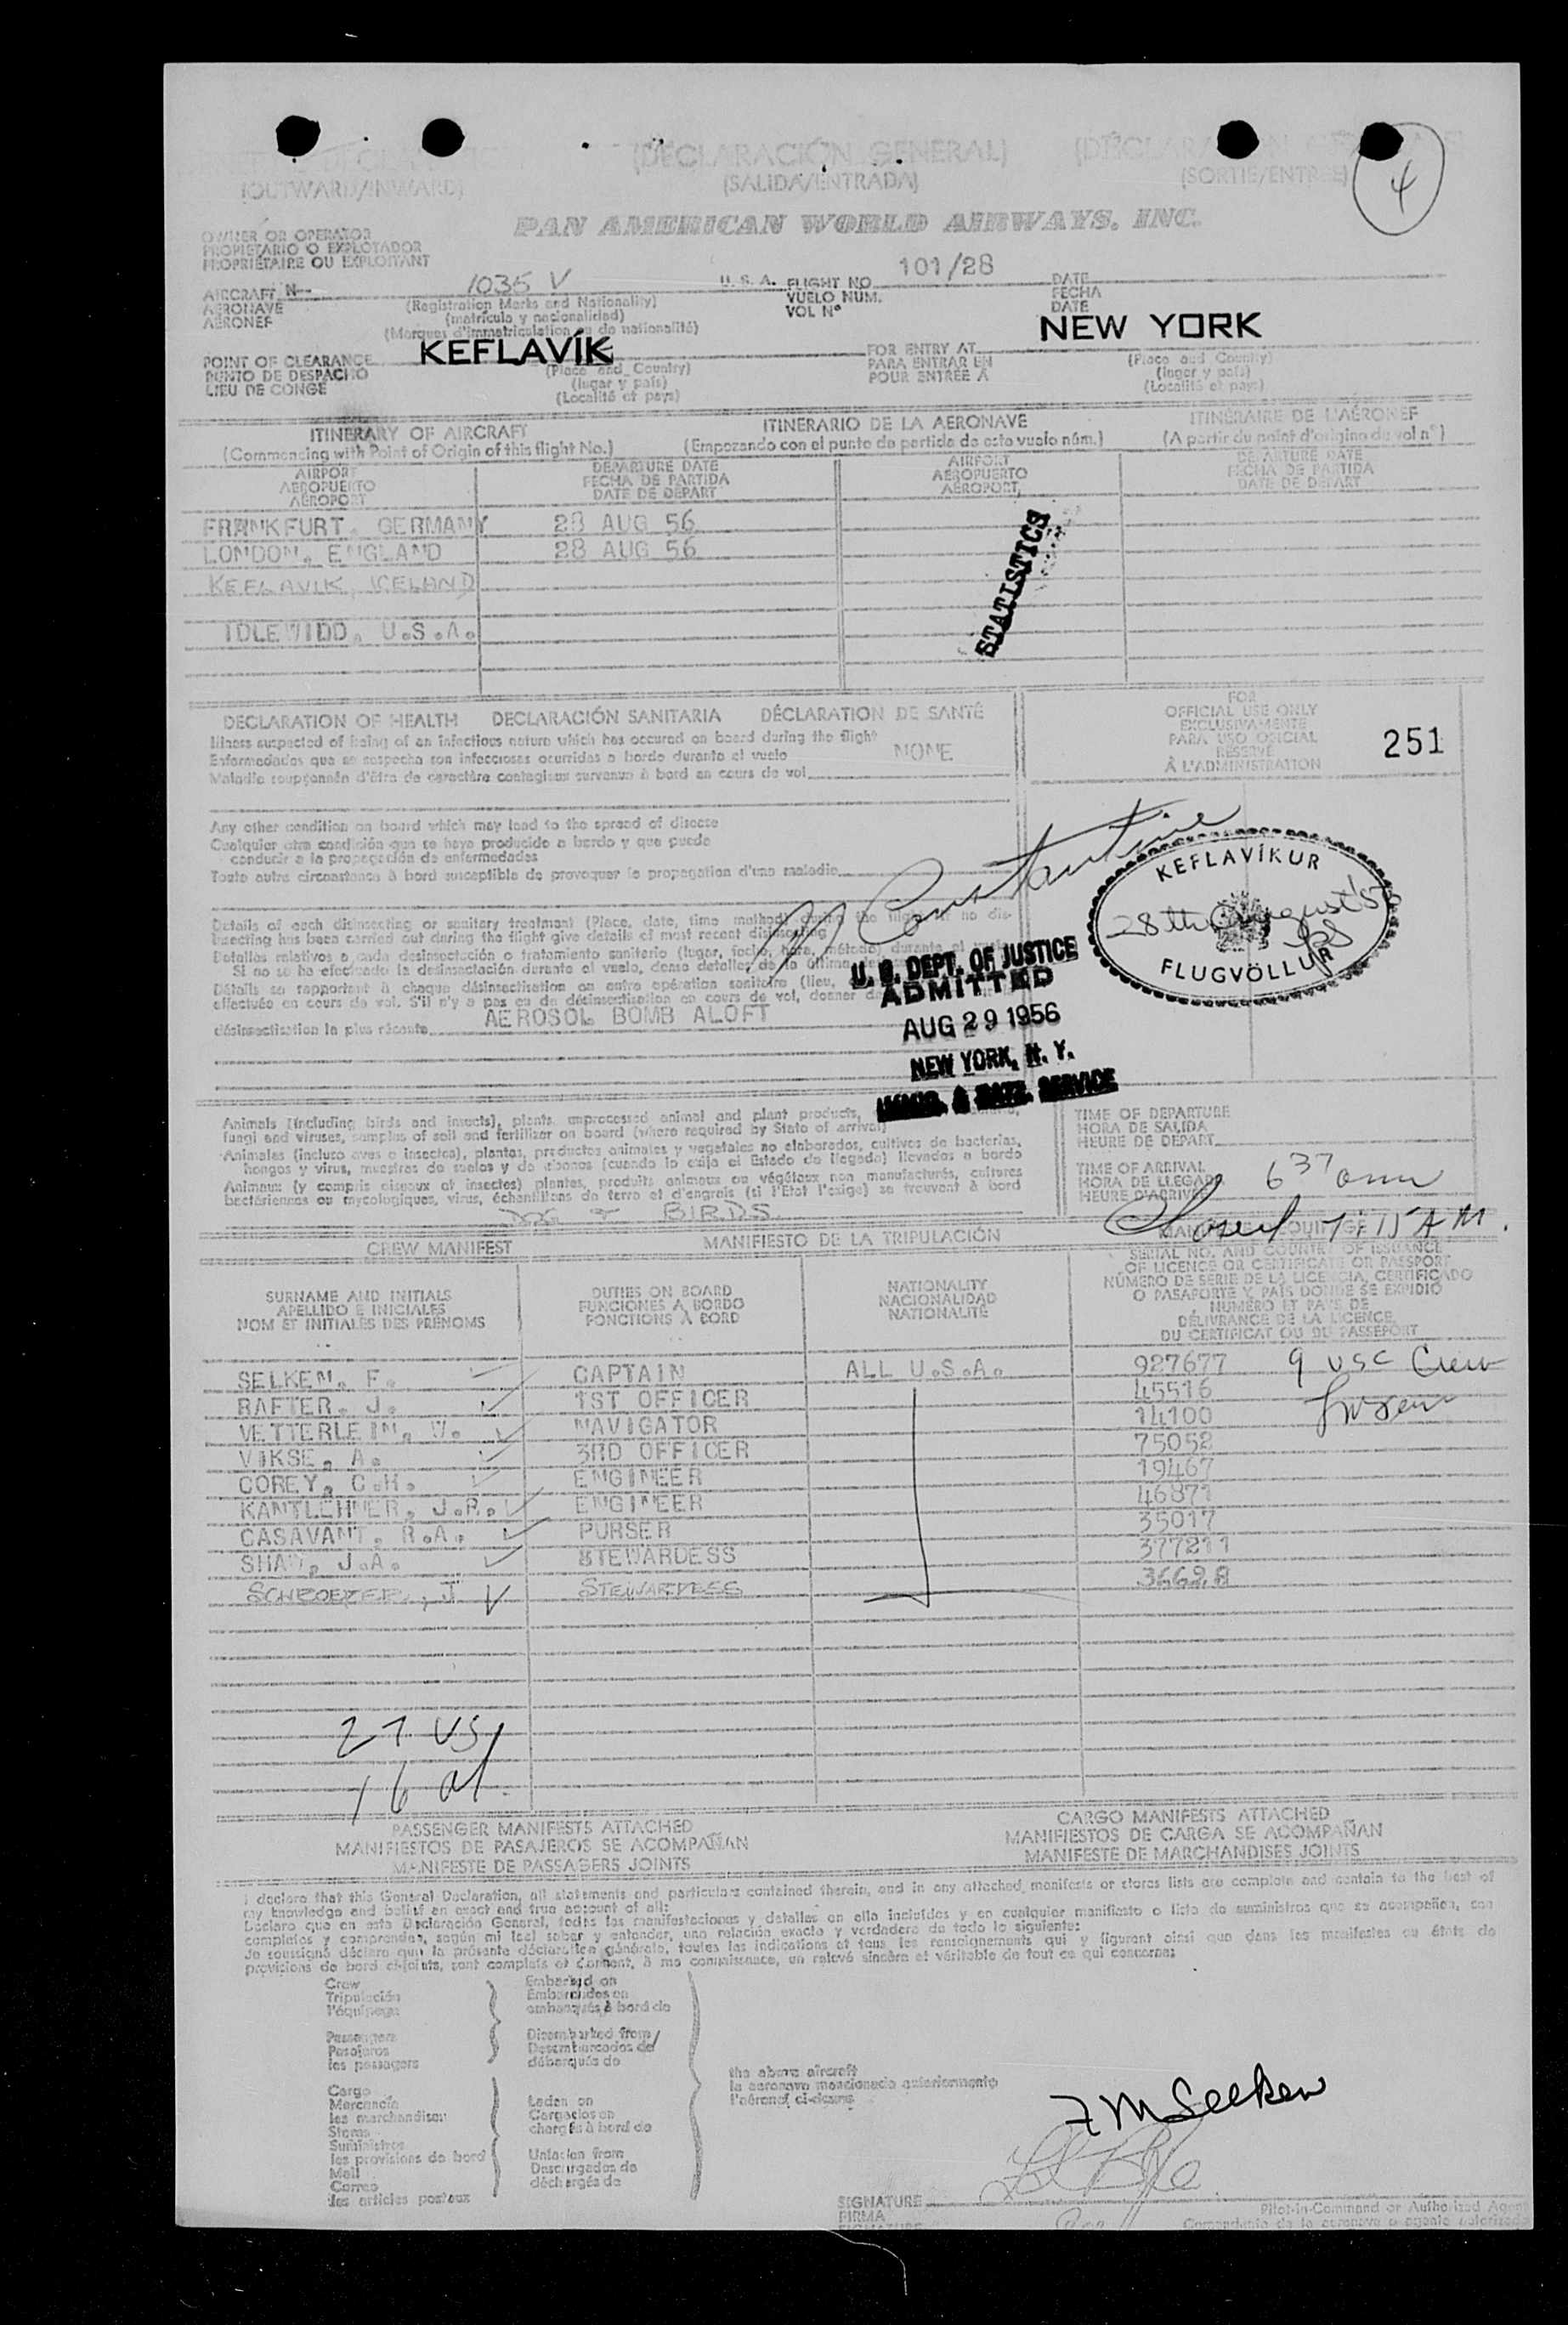 (DECLARACIÓN GENERAL)
(OUTWARD/INWARD) (SALIDA/ENTRADA) (SORTIE/ENTRÉE) 4
PAN AMERICAN WORLD AIRWAYS, INC.
OWNER OR OPERATOR
PROPIETARIO O EXPLOTADOR
PROPRIÉTAIRE OU EXPLOITANT
AIRCRAFT N- 1035 V U. S. A. FLIGHT NO. 101/28 DATE
AERONAVE (Registration Marks and Nationality) VUELO NUM. FECHA
AÉRONEF (matrícula y nacionalidad) VOL Nº DATE
(Marques d'immatriculation ou de nationalité)
POINT OF CLEARANCE KEFLAVÍK FOR ENTRY AT NEW YORK
PUNTO DE DESPACHO (Place and Country) PARA ENTRAR EN (Place and Country)
LIEU DE CONGÉ (lugar y país) POUR ENTRÉE À (lugar y país)
(Localité et pays) (Localité et pays)
ITINERARY OF AIRCRAFT ITINERARIO DE LA AERONAVE ITINÉRAIRE DE L'AÉRONEF
(Commencing with Point of Origin of this flight No.) (Empezando con el punto de partida de este vuelo núm.) (A partir du point d'origine du vol nº)
AIRPORT DEPARTURE DATE AIRPORT DEPARTURE DATE
AEROPUERTO FECHA DE PARTIDA AEROPUERTO FECHA DE PARTIDA
AÉROPORT DATE DE DÉPART AÉROPORT DATE DE DÉPART
FRANKFURT, GERMANY 28 AUG 56
LONDON, ENGLAND 28 AUG 56
KEFLAVIK, ICELAND
IDLEWIDD, U.S.A.
STATISTICS
DECLARATION OF HEALTH DECLARACIÓN SANITARIA DÉCLARATION DE SANTÉ
Illness suspected of being of an infectious nature which has occured on board during the flight
Enfermedades que se sospecha son infecciosas ocurridas a bordo durante el vuelo NONE
Maladie soupçonnée d'être de caractère contagieux survenue à bord en cours de vol
FOR
OFFICIAL USE ONLY
EXCLUSIVAMENTE
PARA USO OFICIAL
RÉSERVÉ
À L'ADMINISTRATION
251
Any other condition on board which may lead to the spread of disease
Cualquier otra condición que se haya producido a bordo y que puede
conducir a la propagación de enfermedades
Toute autre circonstance à bord susceptible de provoquer la propagation d'une maladie
Constantine
KEFLAVÍKUR
28th August '56
FLUGVÖLLUR
Details of each disinsecting or sanitary treatment (Place, date, time method) during the flight. If no dis-
insecting has been carried out during the flight give details of most recent disinsecting
Detalles relativos a cada desinsectación o tratamiento sanitario (lugar, fecha, hora, método) durante el
Si no se ha efectuado la desinsectación durante el vuelo, dense detalles de la última
Détails se rapportant à chaque désinsectisation ou autre opération sanitaire (lieu,
effectuée en cours de vol. S'il n'y a pas eu de désinsectisation en cours de vol, donner
désinsectisation la plus récente AEROSOL BOMB ALOFT
U. S. DEPT. OF JUSTICE
ADMITTED
AUG 29 1956
NEW YORK, N. Y.
IMMIG. & NATZ. SERVICE
Animals (including birds and insects), plants, unprocessed animal and plant products,
fungi and viruses, samples of soil and fertilizer on board (where required by State of arrival)
Animales (incluso aves o insectos), plantas, productos animales y vegetales no elaborados, cultivos de bacterias,
hongos y virus, muestras de suelos y de abonos (cuando lo exija el Estado de llegada) llevados a bordo
Animaux (y compris oiseaux et insectes) plantes, produits animaux ou végétaux non manufacturés, cultures
bactériennes ou mycologiques, virus, échantillons de terre et d'engrais (si l'Etat l'exige) se trouvant à bord
DOG + BIRDS
TIME OF DEPARTURE
HORA DE SALIDA
HEURE DE DÉPART
TIME OF ARRIVAL
HORA DE LLEGADA 6 37 am
HEURE D'ARRIVÉE
Closed 7:15 AM.
CREW MANIFEST MANIFIESTO DE LA TRIPULACIÓN
SURNAME AND INITIALS
APELLIDO E INICIALES
NOM ET INITIALES DES PRÉNOMS
DUTIES ON BOARD
FUNCIONES A BORDO
FONCTIONS À BORD
NATIONALITY
NACIONALIDAD
NATIONALITÉ
SERIAL NO. AND COUNTRY OF ISSUANCE
OF LICENCE OR CERTIFICATE OR PASSPORT
NÚMERO DE SERIE DE LA LICENCIA, CERTIFICADO
O PASAPORTE Y PAIS DONDE SE EXPIDIÓ
NUMÉRO ET PAYS DE
DÉLIVRANCE DE LA LICENCE,
DU CERTIFICAT OU DU PASSEPORT
SELKEN, F. CAPTAIN ALL U.S.A. 927677 9 USC Crew
RAFTER, J. 1ST OFFICER 45516
VETTERLEIN, W. NAVIGATOR 14100
VIKSE, A. 3RD OFFICER 75052
COREY, C.H. ENGINEER 19467
KANTLEHNER, J.R. ENGINEER 46871
CASAVANT, R.A. PURSER 35017
SHAW, J.A. STEWARDESS 377211
SCHROEDER, J STEWARDESS 36628
27 US
16 al.
PASSENGER MANIFESTS ATTACHED CARGO MANIFESTS ATTACHED
MANIFIESTOS DE PASAJEROS SE ACOMPAÑAN MANIFIESTOS DE CARGA SE ACOMPAÑAN
MANIFESTE DE PASSAGERS JOINTS MANIFESTE DE MARCHANDISES JOINTS
I declare that this General Declaration, all statements and particulars contained therein, and in any attached manifests or stores lists are complete and contain to the best of
my knowledge and belief an exact and true account of all:
Declaro que en esta Declaración General, todas las manifestaciones y detalles en ella incluidos y en cualquier manifiesto o lista de suministros que se acompañen, son
completos y comprenden, según mi leal saber y entender, una relación exacta y verdadera de todo lo siguiente:
Je soussigné déclare que la présente déclaration générale, toutes les indications et tous les renseignements qui y figurent ainsi que dans les manifestes ou états de
provisions de bord ci-joints, sont complets et donnent, à ma connaissance, un relevé sincère et véritable de tout ce qui concerne:
Crew Embarked on
Tripulación Embarcados en
l'équipage embarqués à bord de
Passengers Disembarked from
Pasajeros Desembarcados de
les passagers débarqués de
the above aircraft
la aeronave mencionada anteriormente
l'aéronef ci-dessus
Cargo
Mercancía Laden on
les marchandises Cargados en
Stores chargés à bord de
Suministros
les provisions de bord Unladen from
Mail Descargados de
Correo déchargés de
les articles postaux
F M Selken
SIGNATURE Pilot-in-Command or Authorized Agent
FIRMA Comandante de la aeronave o agente autorizado
SIGNATURE